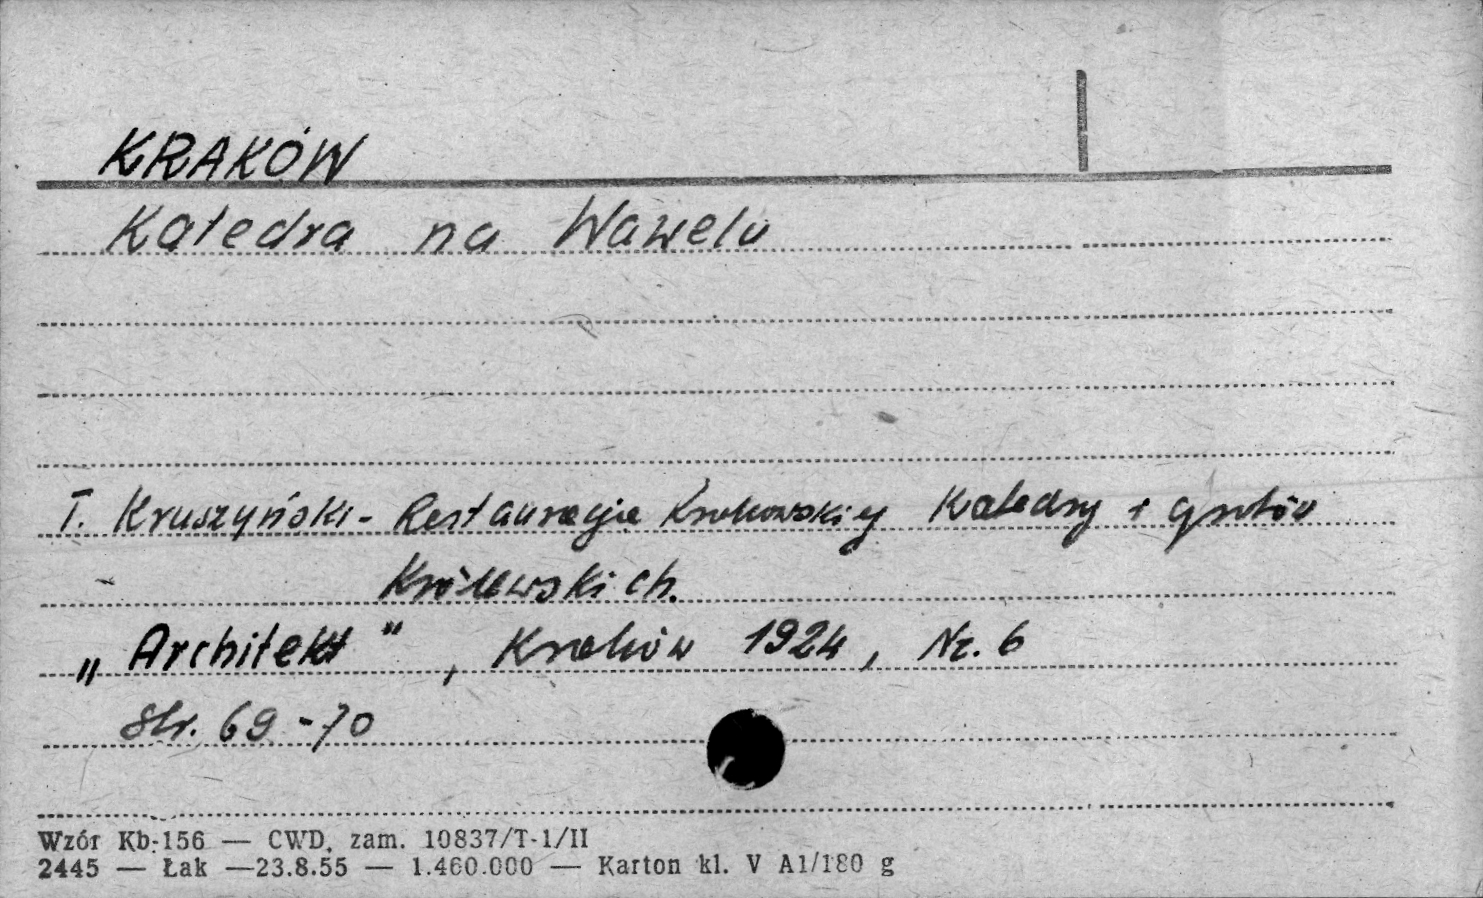 KRAKÓW
Katedra na Wawelu
T. Kruszyński - Restauracja Krakowskiej Katedry i grobów
Królewskich.
„Architekt", Kraków 1924, Nr. 6
Str. 69-70
Wzór Kb-156 — CWD, zam. 10837/T-1/II
2445 — Łak —23.8.55 — 1.460.000 — Karton kl. V A1/180 g